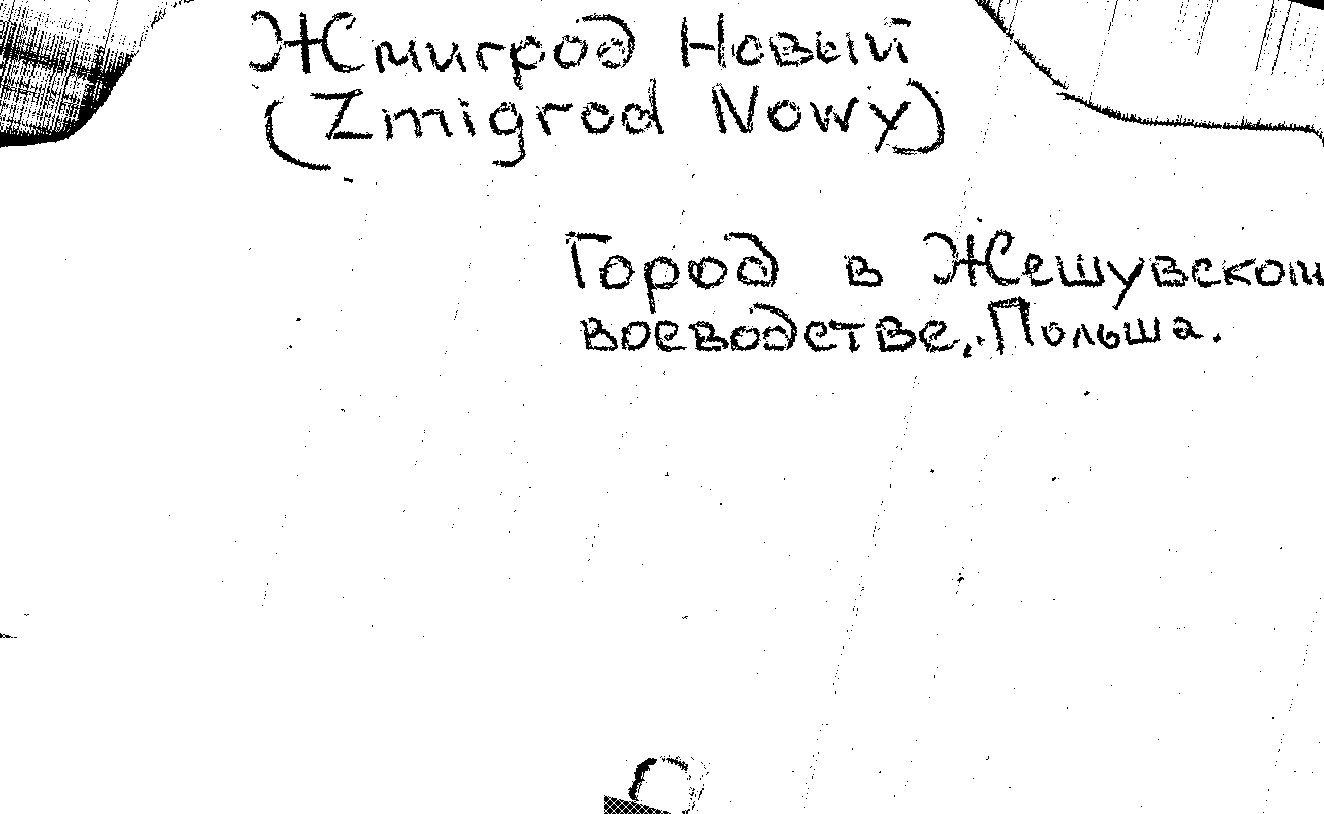 Жмигрод Новый
(Zmigrod Nowy)
Город в Жешувском
воеводстве, Польша.